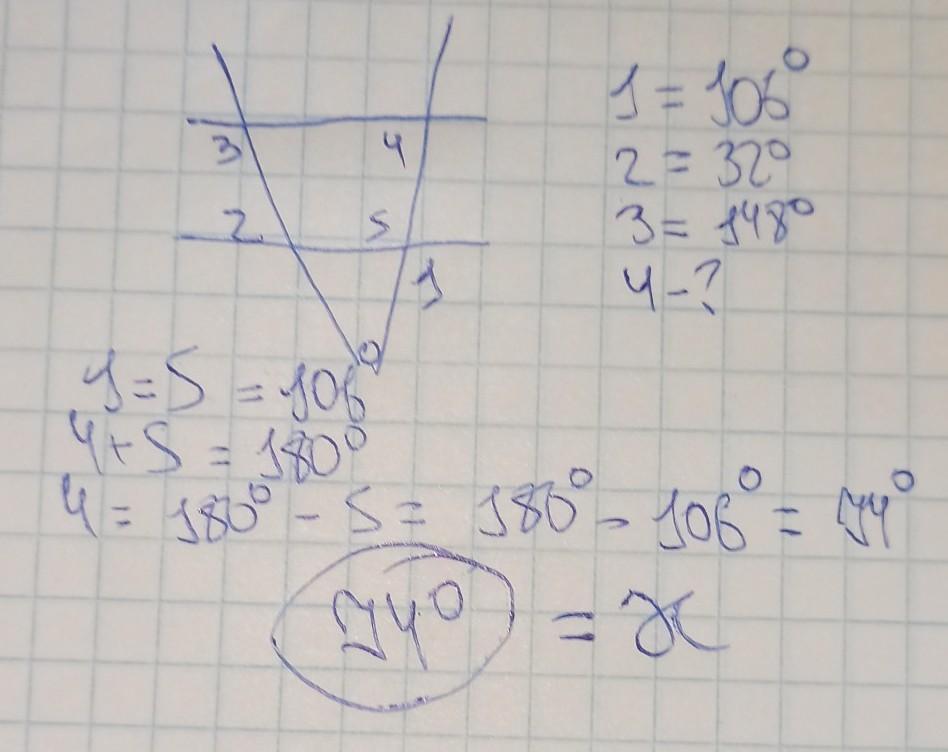 3 4
2 5
1
1 = 106°
2 = 32°
3 = 148°
4 - ?
1 = 5 = 106°
4 + 5 = 180°
4 = 180° - 5 = 180° - 106° = 74°
74° = x